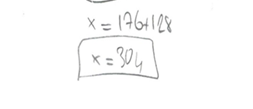 x = 176+128
x = 304